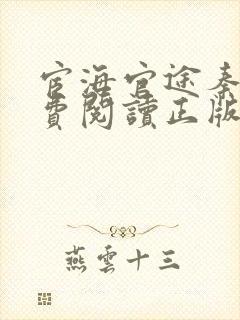 宦海官途秦
費閱讀正版
燕雲十三